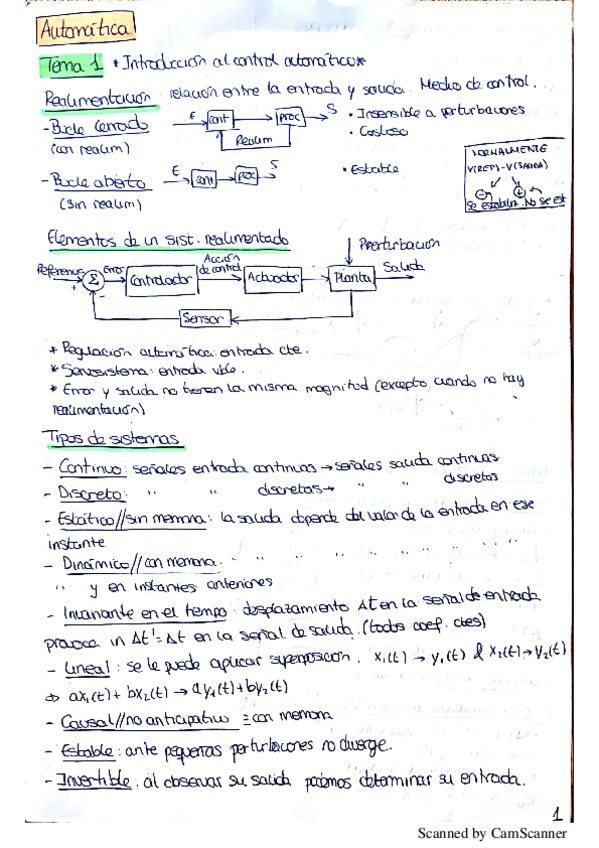 Automática
Tema 1 * Introducción al control automático *
Realimentación: relación entre la entrada y salida. Medio de control.
- Bucle cerrado
(con realim)
E cont proc S
Realim
• Insensible a perturbaciones
• Costoso
- Bucle abierto
(sin realim)
E cont proc S
• Estable
NORMALMENTE
V(REF)-V(SALIDA)
- +
Se estabiliz. No se est
Elementos de un sist. realimentado
Perturbación
Referencia + Σ Error Controlador Acción de control Actuador Planta Salida
-
Sensor
* Regulación automática: entrada cte.
* Servosistema: entrada vble.
* Error y salida no tienen la misma magnitud (excepto cuando no hay
realimentación)
Tipos de sistemas
- Continuo: señales entrada continuas → señales salida continuas
- Discreto: " " discretas → " " discretas
- Estático//sin memoria: la salida depende del valor de la entrada en ese
instante
- Dinámico//con memoria: " " " " " " "
" y en instantes anteriores
- Invariante en el tiempo: desplazamiento Δt en la señal de entrada
provoca un Δt'=Δt en la señal de salida. (todos coef. ctes)
- Lineal: se le puede aplicar superposición. x₁(t) → y₁(t) & x₂(t) → y₂(t)
⇒ ax₁(t) + bx₂(t) → ay₁(t)+by₂(t)
- Causal//no anticipativo ≡ con memoria
- Estable: ante pequeñas perturbaciones no diverge.
- Invertible: al observar su salida podemos determinar su entrada.
1
Scanned by CamScanner